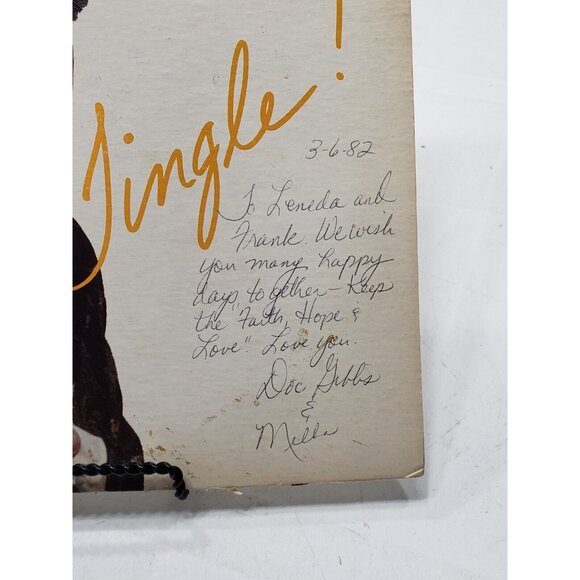 Jingle!
3-6-82
To Leneda and
Frank. We wish
you many happy
days, together - Keep
the "Faith, Hope &
Love". Love you.
Doc Gibbs
&
Milla